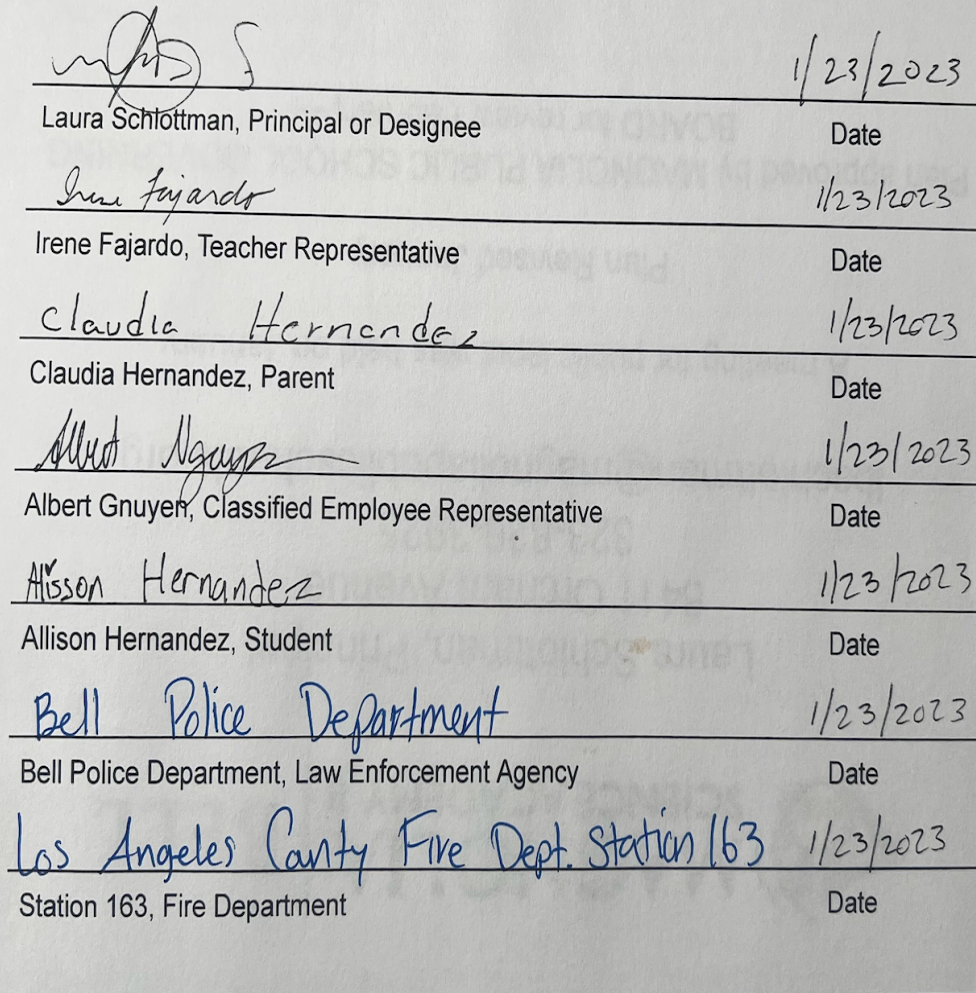 1/23/2023
Laura Schlottman, Principal or Designee Date
Irene Fajardo 1/23/2023
Irene Fajardo, Teacher Representative Date
Claudia Hernandez 1/23/2023
Claudia Hernandez, Parent Date
Albert Nguyen 1/23/2023
Albert Gnuyen, Classified Employee Representative Date
Alisson Hernandez 1/23/2023
Allison Hernandez, Student Date
Bell Police Department 1/23/2023
Bell Police Department, Law Enforcement Agency Date
Los Angeles County Fire Dept. Station 163 1/23/2023
Station 163, Fire Department Date